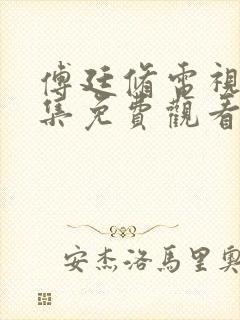 傅廷脩電視
集免費觀看
安杰洛馬里奧